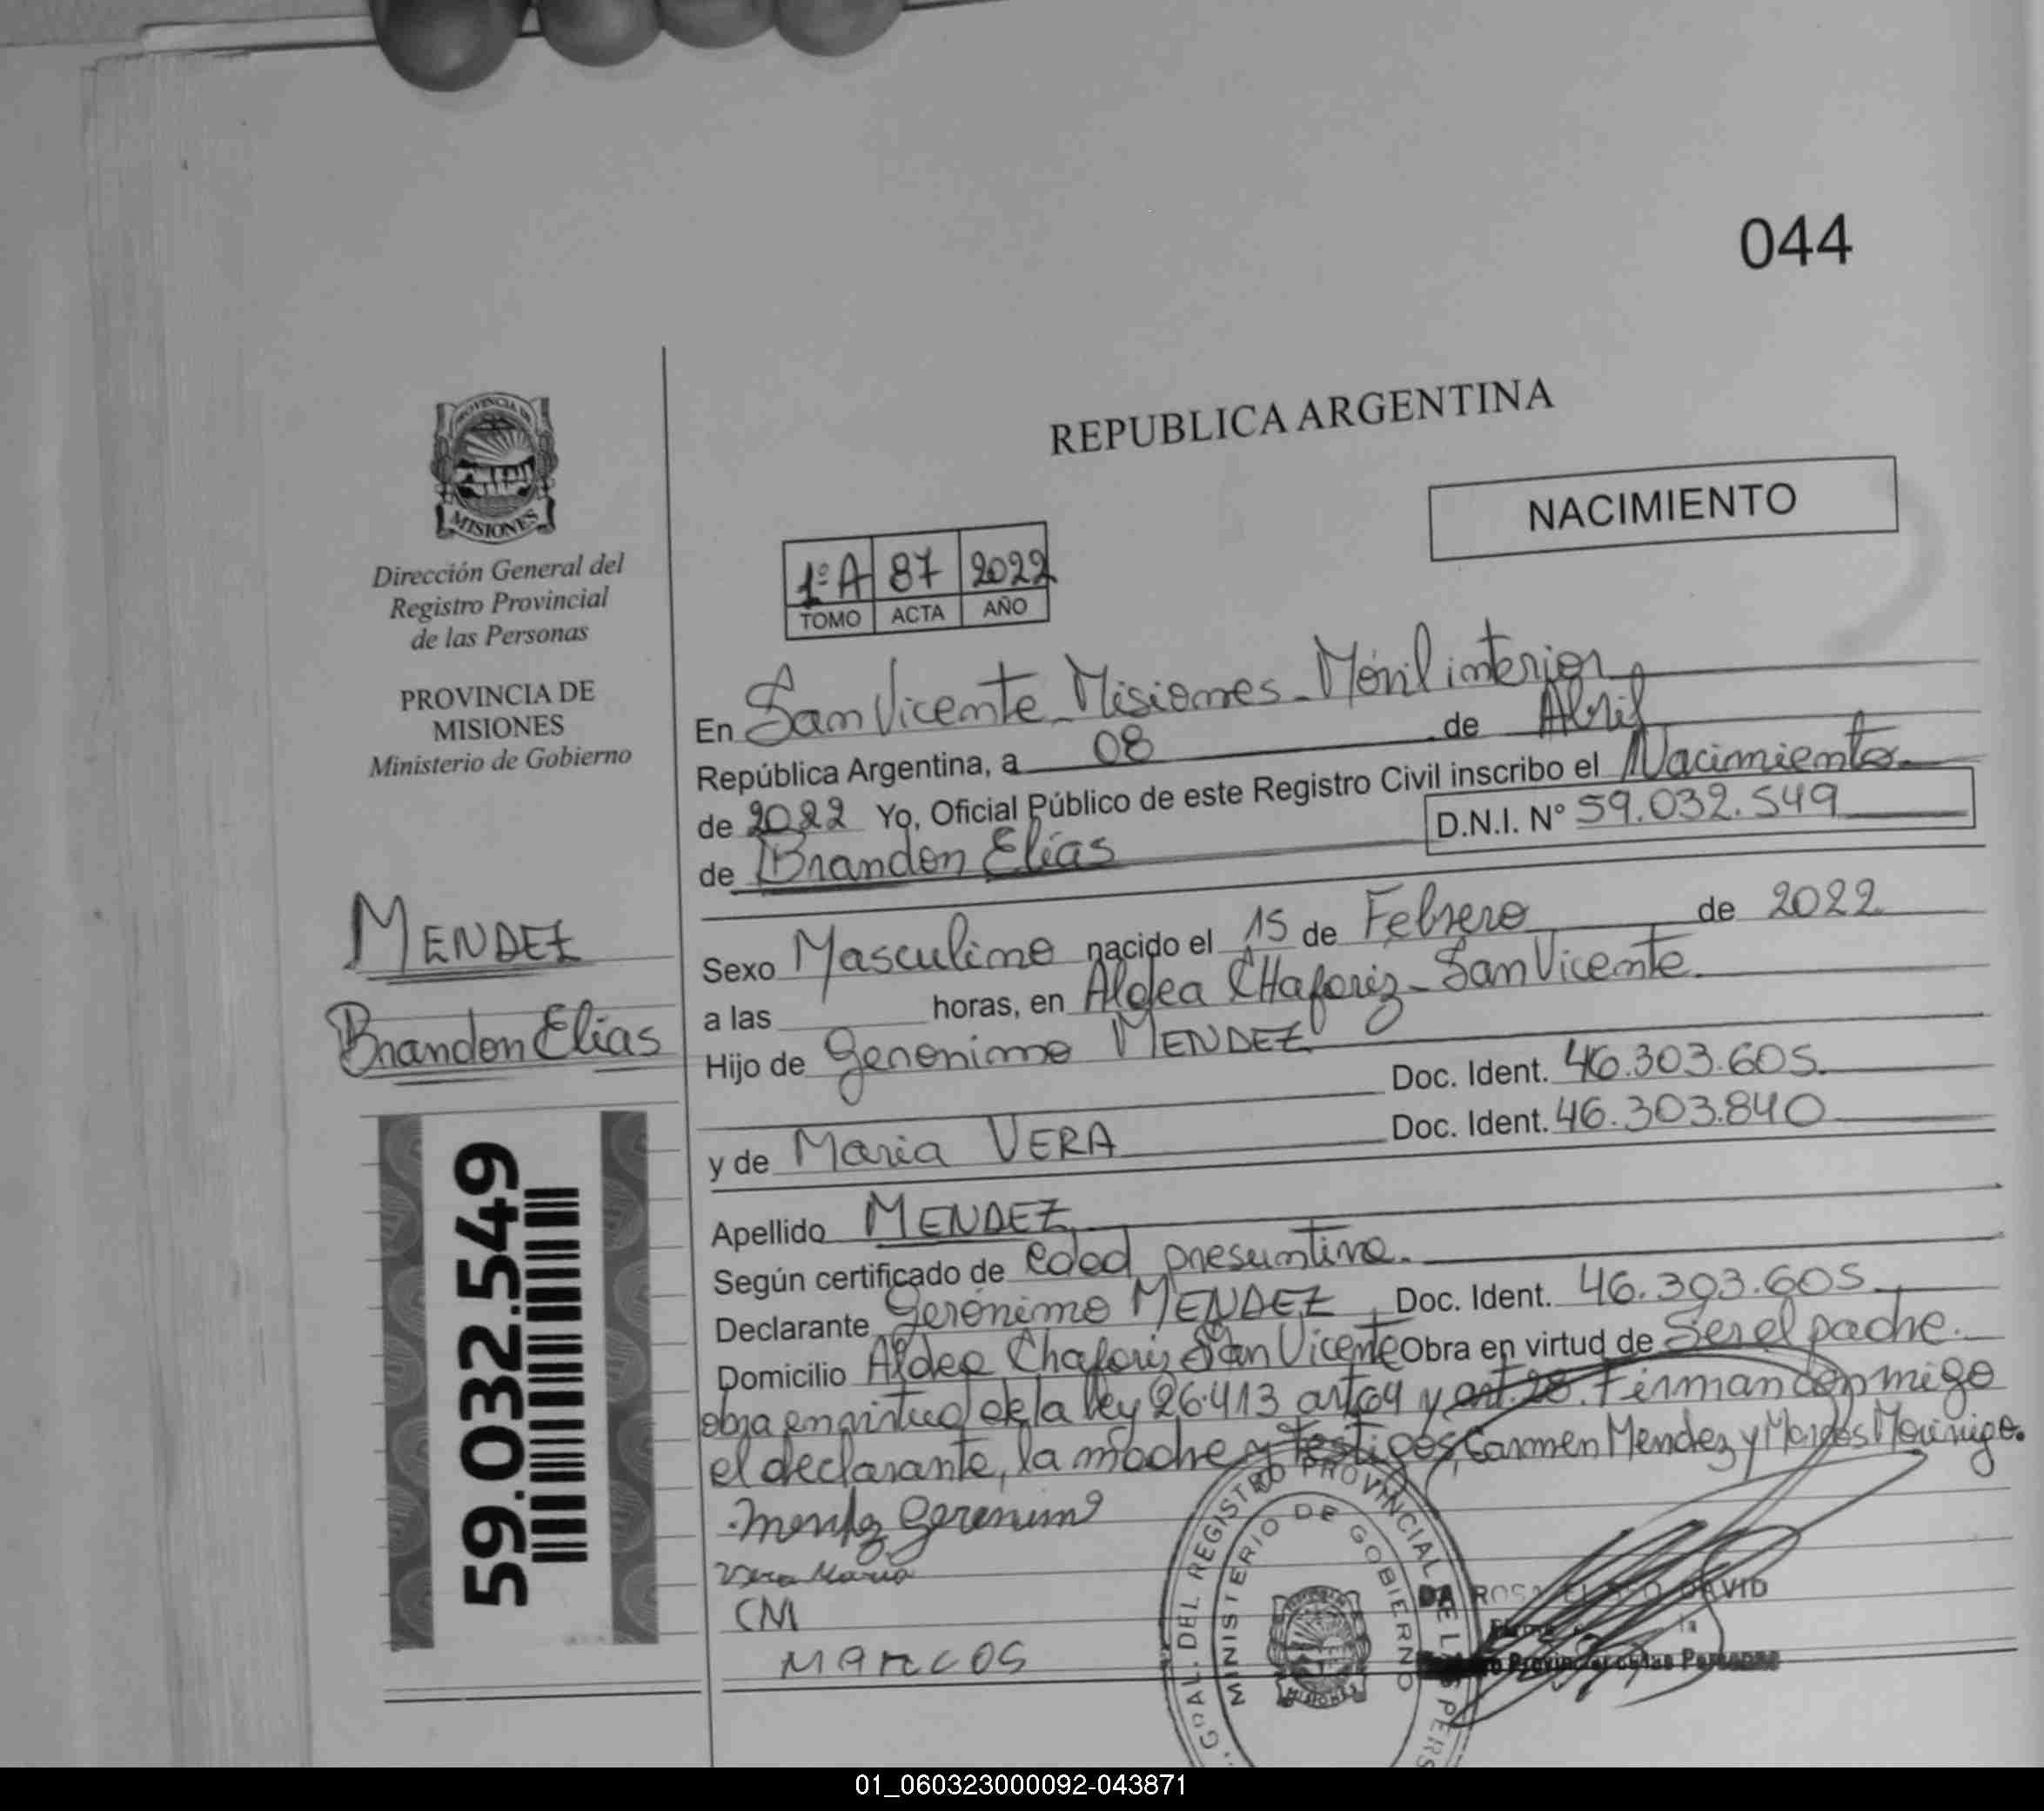 044
REPUBLICA ARGENTINA
NACIMIENTO
PROVINCIA DE
MISIONES
Dirección General del
Registro Provincial
de las Personas
PROVINCIA DE
MISIONES
Ministerio de Gobierno
1º A 87 2022
TOMO ACTA AÑO
En San Vicente - Misiones - Móvil interior
República Argentina, a 08 de Abril
de 2022 Yo, Oficial Público de este Registro Civil inscribo el Nacimiento
D.N.I. Nº 59.032.549
de Brandon Elías
MENDEZ
Brandon Elías
59.032.549
Sexo Masculino nacido el 15 de Febrero de 2022
a las horas, en Aldea CHafariz - San Vicente
Hijo de Geronimo MENDEZ
Doc. Ident. 46.303.605
y de Maria VERA Doc. Ident. 46.303.840
Apellido MENDEZ
Según certificado de edad presuntiva.
Declarante Gerónimo MENDEZ, Doc. Ident. 46.303.605
Domicilio Aldea Chafariz San Vicente Obra en virtud de Ser el padre.
obra en virtud de la ley 26.413 art 64 y art. 28. Firman conmigo
el declarante, la madre y testigos, Carmen Mendez y Marcos Morinigo.
Mendez Geronimo
Vera Maria
CM
MARCOS
GRAL. DEL REGISTRO PROVINCIAL DE LAS PERS
MINISTERIO DE GOBIERNO
MISIONES
DA ROSA DAVID
01_060323000092-043871